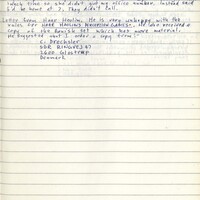 which time so she didn't get my office number. Instead said
I'd be home at 7. They didn't call.
Letter from Hans Hoslim. He is very unhappy with the
rules for HANS He also received a
copy of the Danish set which has more material.
He suggested that I order a copy from:
C. Drechsler
2600 Glostrup
Denmark